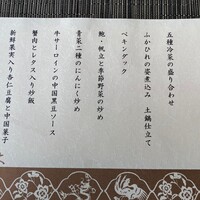 五種冷菜の盛り合わせ
ふかひれの姿煮込み　土鍋仕立て
ペキンダック
鮑・帆立と季節野菜の炒め
青菜二種のにんにく炒め
牛サーロインの中国黒豆ソース
蟹肉とレタス入り炒飯
新鮮果実入り杏仁豆腐と中国菓子